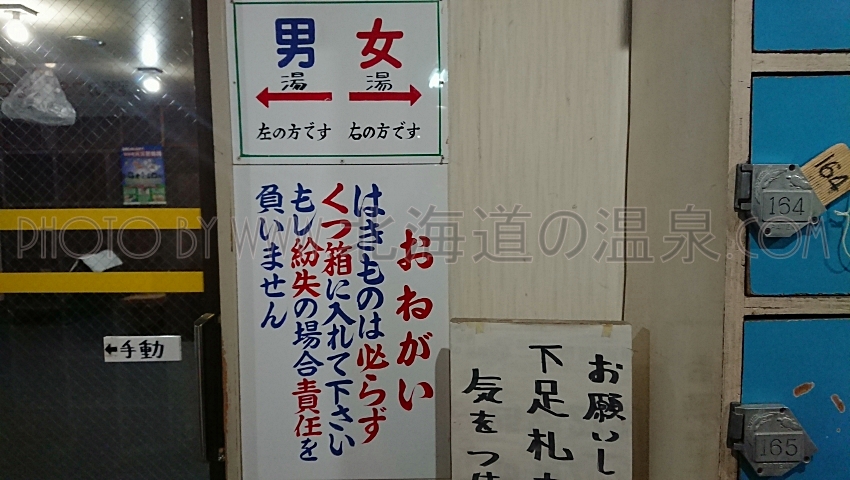 男湯
左の方です
女湯
右の方です
おねがい
はきものは必らず
くつ箱に入れて下さい
もし紛失の場合責任を
負いません
手動
お願いし
下足札
気をつけ
164
164
165
PHOTO BY WWW.北海道の温泉.COM